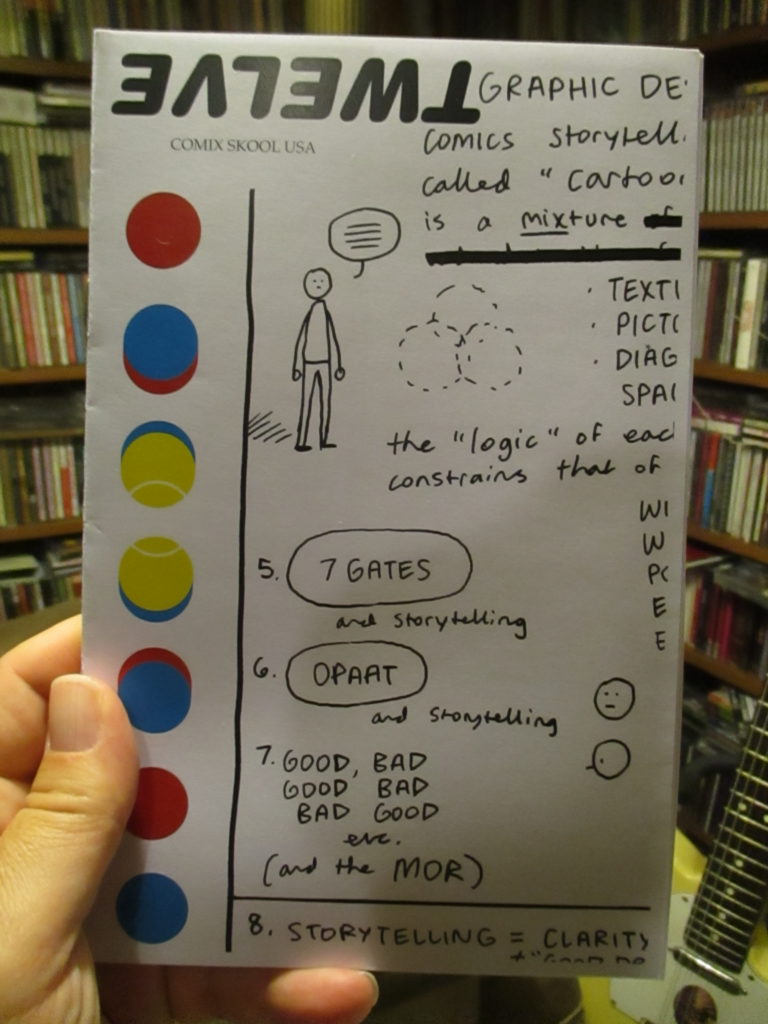 TWELVE
COMIX SKOOL USA
GRAPHIC DE
COMICS Storytell
called "Cartoo
is a mixture
· TEXTI
· PICTO
· DIAG
SPA
the "logic" of eac
constrains that of
WI
W
PO
E
E
5. 7 GATES
and storytelling
6. OPAAT
and storytelling
7. GOOD, BAD
GOOD BAD
BAD GOOD
etc.
(and the MOR)
8. STORYTELLING = CLARITY